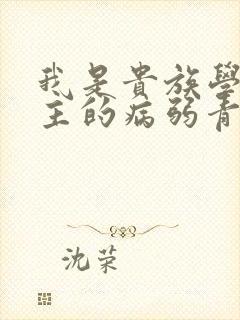 我是貴族學
主的病弱青
沈荣